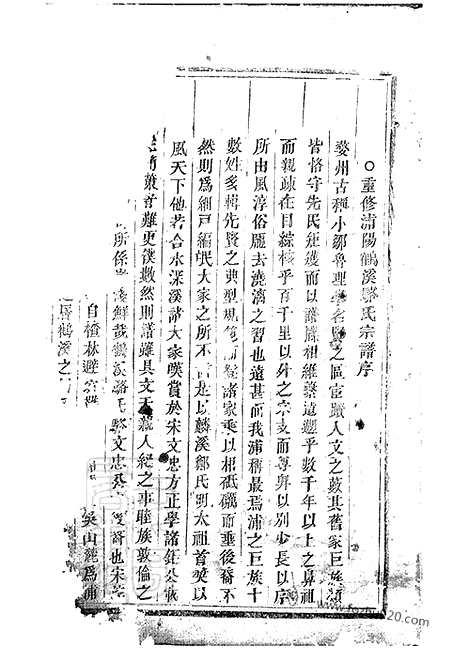 ○重修浦陽鶴溪駱氏宗譜序
婺州古稱小鄒魯理學名賢之區宦蹟人文之藪其舊家巨族類
皆恪守先民矩矱而以譜牒相維繫遠遡乎數千年以上之鼻祖
而親疎在目綜核乎百千里以外之宗支而尊卑以別少長以序
所由風淳俗麗去澆漓之習也遠甚而我浦稱最焉浦之巨族十
數姓多輯先賢之典型規範而諸家乘以相砥礪而垂後裔不
然則爲細戶編氓大家之所不言是以麟溪鄭氏明太祖首奬以
風天下他若合水深溪諸大家嘆賞於宋文忠方正學諸鉅公
策者難更僕數然則譜雖具文天人紀之事睦族敦倫之
所係鮮哉鶴溪駱氏文忠也宋
自楂林避
居鶴溪之
吳山麓爲浦